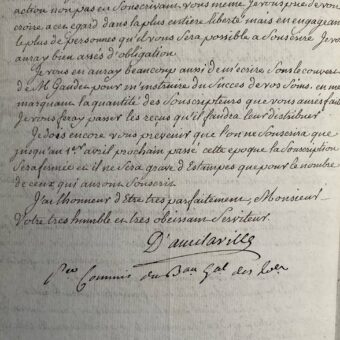 action non pas en Souscrivant vous meme. Je vous prie de vous
croire a cet egard dans la plus entiere liberté mais en engageant
le plus de personnes qu'il vous Sera possible a Souscrire Je vous
auray bien assés d'obligation.
Je vous en auray beaucoup aussi de m'ecrire Sous le couvert
de M. Gaudet pour m'instruire du Succés de vos Soins, en me
marquant la quantité des Souscripteurs que vous aurés fait
Je vous feray passer les reçus qu'il faudra leur distribuer
Je dois encore vous prevenir que l'on ne Souscrira que
jusqu'au 1er avril prochain passé cette epoque la Souscription
Sera fermée et il ne Sera gravé d'Estampes que pour le nombre
de ceux qui auront Souscris.
J'ai l'honneur d'Etre tres parfaitement, Monsieur
Votre tres humble et tres obeissant Serviteur.
Per Commis du Bau Gal des